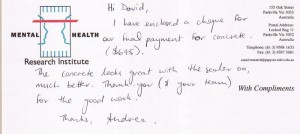 Hi David,
I have enclosed a cheque for
our final payment for concrete.
($695).
The concrete looks great with the sealer on,
much better. Thank you (& your team)
for the good work.
Thanks, Andrea.
MENTAL HEALTH
Research Institute
155 Oak Street
Parkville Vic 3052
Australia
Postal Address:
Locked Bag 11
Parkville Vic 3052
Australia
With Compliments